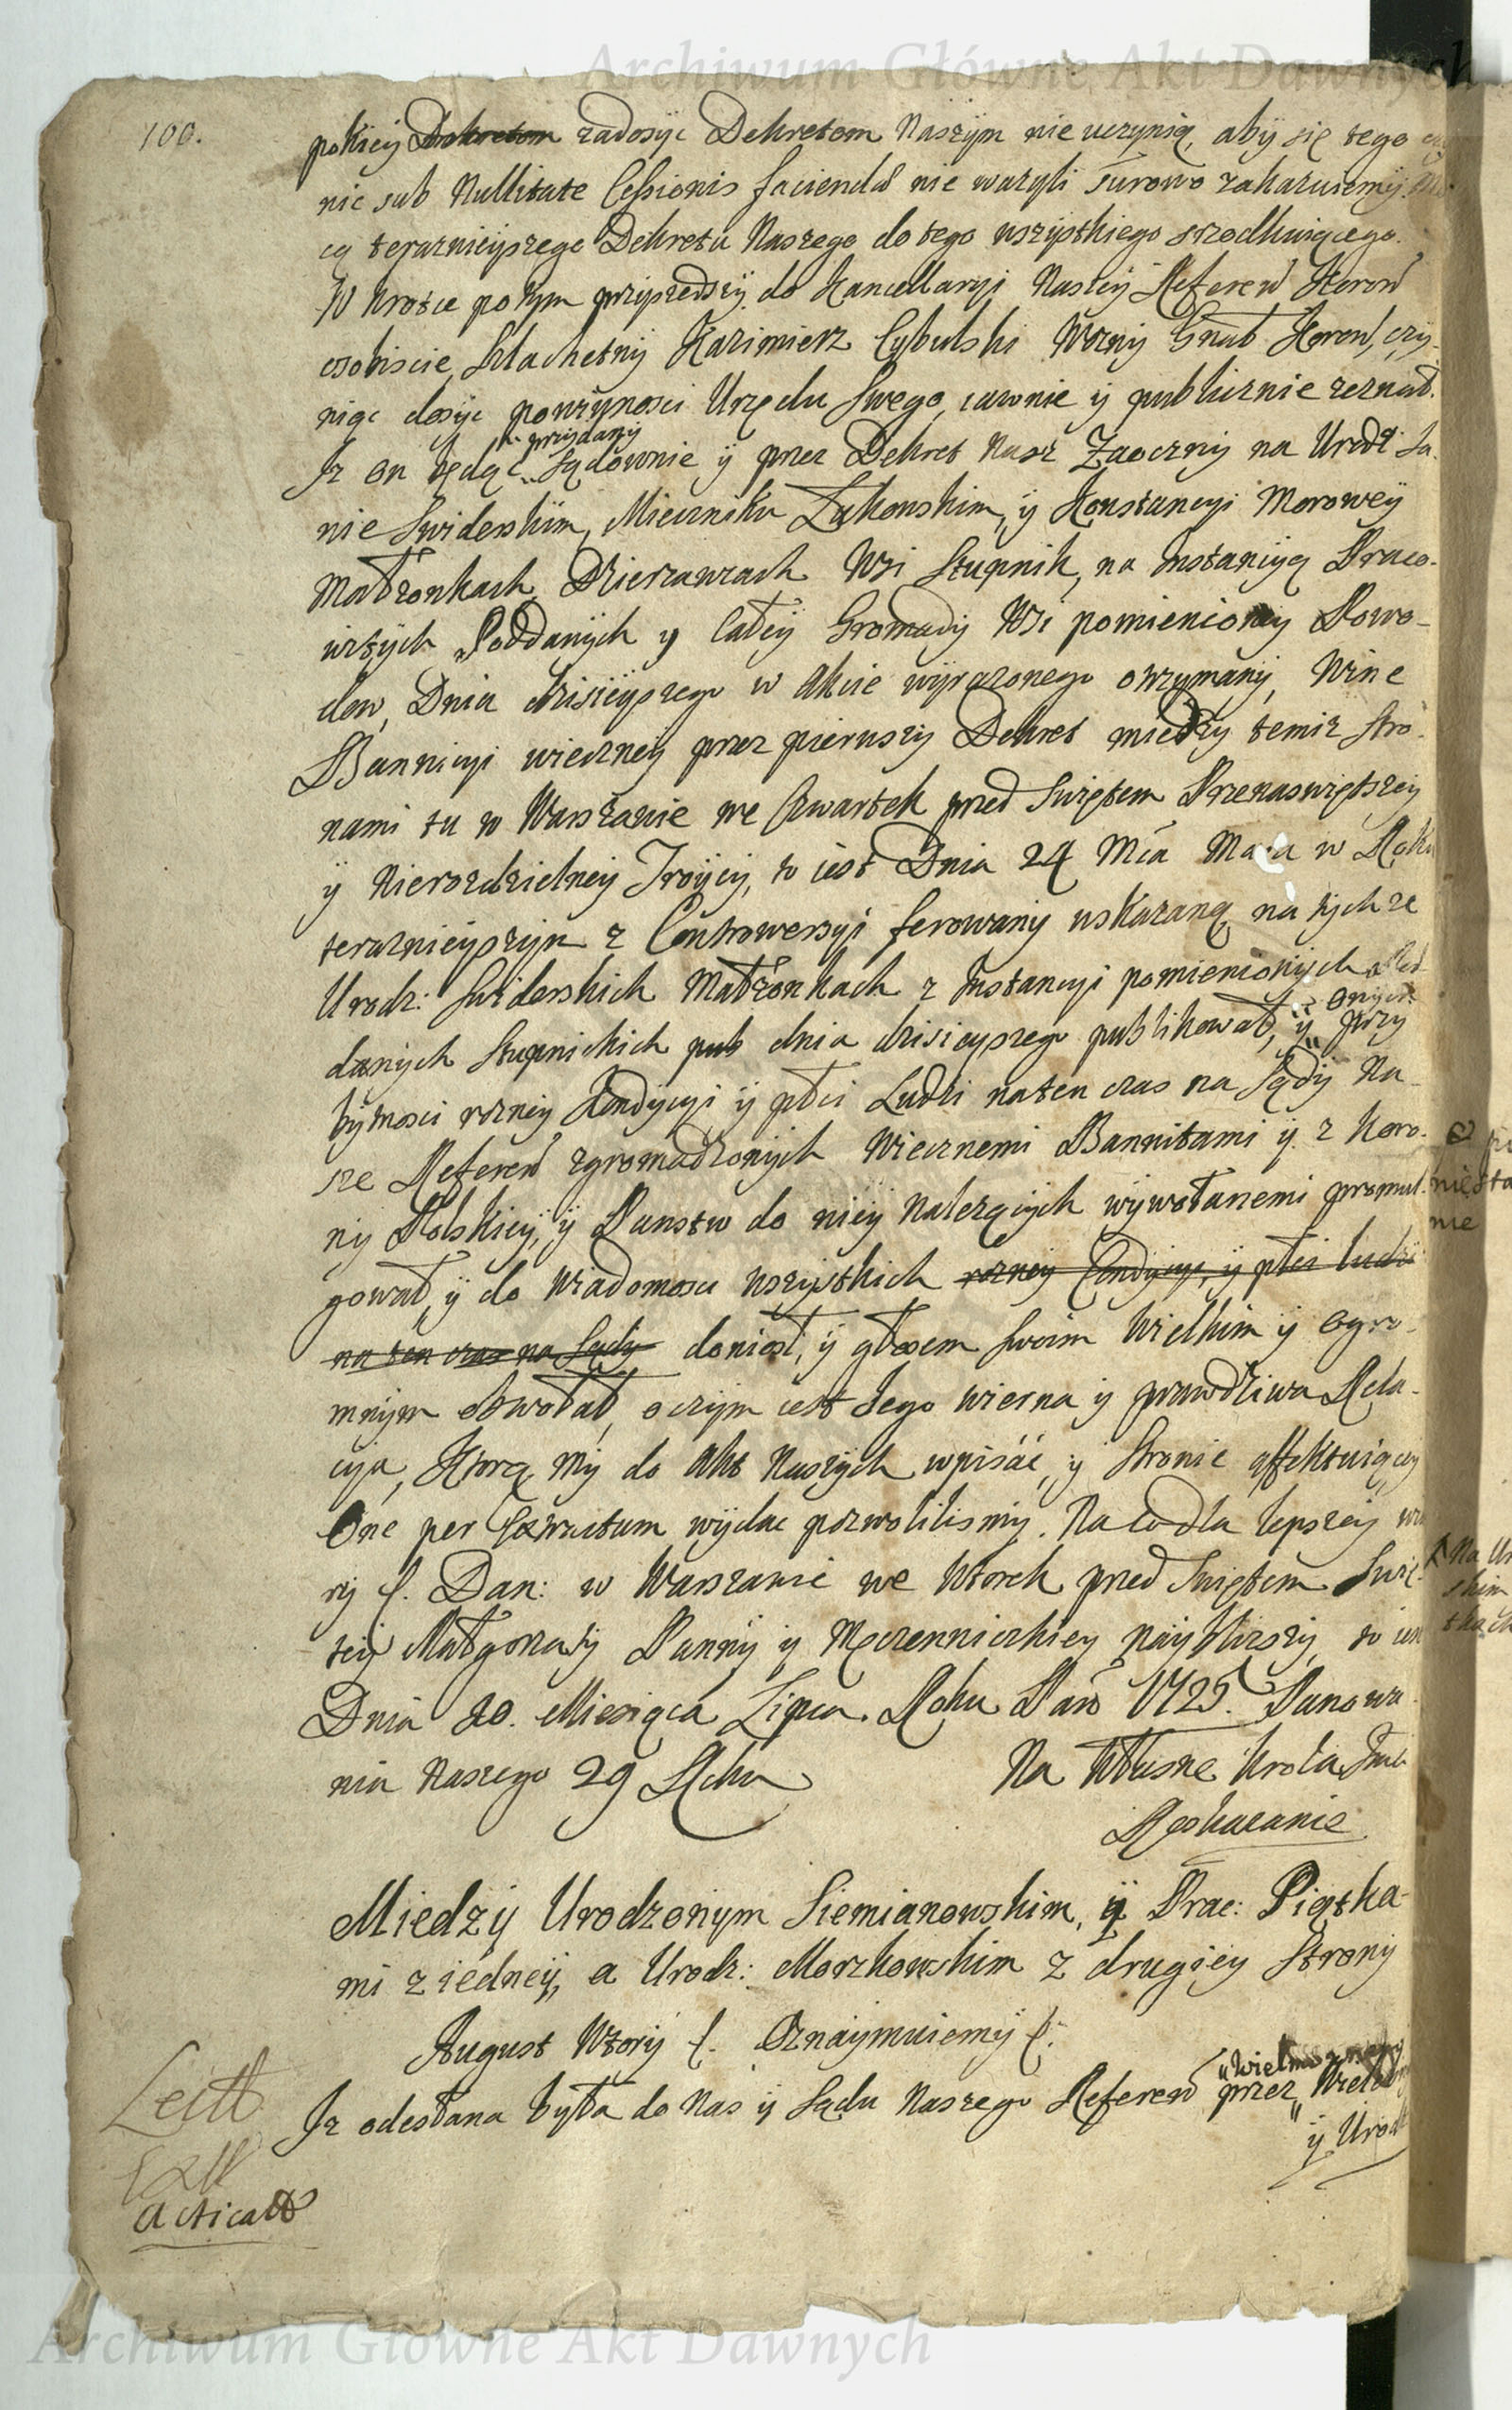 Archiwum Główne Akt Dawnych
100.
pokiey Dekretom zadosyc Dekretom Naszym nie uczynią, aby się tego
nic sub Nullitate Cessionis faciendæ nie ważyli surowo zakazuiemy.
cą teraznieyszego Dekretu Naszego do tego wszystkiego srzodkuiącego.
W krotce potym przyszedszy do Kancellaryi Naszey Referen Koron
osobiscie Szlachetny Kazimierz Cybulski Wozny Gnał Koron, czy-
niąc dosyc powinnosci Urzędu Swego, iawnie y publicznie zeznał.
przydany
Iz on będąc Sądownie y przez Dekret Nasz Zaoczny na Urodz: Ja-
nie Swiderskim, Mieczniku Łukowskim, y Konstancyi Morowey
Małzonkach, Dzierzawcach Wsi Stupnik, na Instancyą Praco-
witych Poddanych y Całey Gromady Wsi pomienioney Powo-
dow, Dnia dzisieyszego w Akcie wyrazonego otrzymany, Wine
Bannicyi wieczney przez pierwszy Dekret między temiz Stro-
nami tu w Warszawie we Czwartek przed Swiętem Przenaswiętszey
y Nierozdzielney Troycy, to iest Dnia 24 Mca Maja w Roku
teraznieyszym z Controwersyi ferowany wskazaną na tychze
Urodz: Swiderskich Małzonkach z Instancyi pomienionych Pod-
danych Stupnickich dnia dzisieyszego publikował, y przy
onych
bytnosci rozney Kondycyi y płci Ludzi naten czas na Sądy Na-
sze Referen zgromadzonych Wiecznemi Bannitami y z Koro-
ny Polskiey, y Panstw do niey Nalezących wywołanemi promul-
gował, y do Wiadomosci wszystkich rozney Condycyi, y płci ludzi
na ten czas na Sądy doniosł, y głosem swoim Wielkim y ogro-
mnym obwołał, o czym iest Jego wierna y prawdziwa Rela-
cyia, Ktorą My do Akt Naszych wpisać, y Stronie affektuiącey
One per Extractum wydac pozwolilismy. Na co dla lepszey
ry f. Dan: w Warszawie we Wtorek przed Swiętem Swię-
tey Małgorzaty Panny y Męczenniczkiey naybliszy, to iest
Dnia 10. Miesiąca Lipca. Roku Pań 1725. Panowa-
nia Naszego 29 Roku
Na Własne Krola Jmci
Roskazanie
Miedzy Urodzonym Siemianowskim, y Prac: Piątka-
mi z iedney, a Urodz: Morzkowskim z drugiey Strony
August Wtory f. Oznaymuiemy f:
Iz odesłana była do Nas y Sądu Naszego Referen przez
y Urodz
Lect
Ext
Acticatt
Archiwum Główne Akt Dawnych